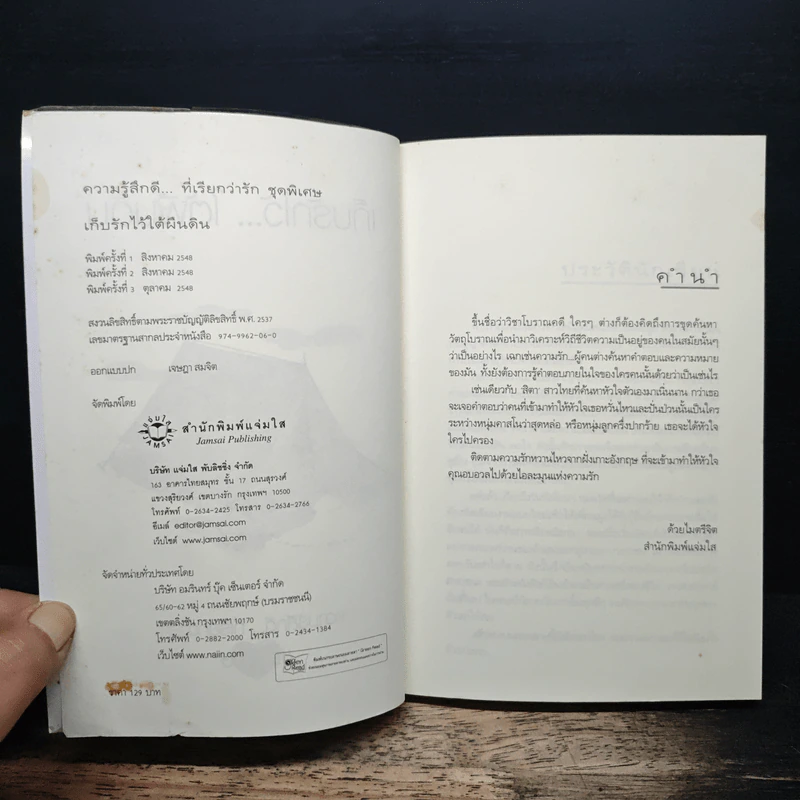 ความรู้สึกดี... ที่เรียกว่ารัก ชุดพิเศษ
เก็บรักไว้ใต้ผืนดิน
พิมพ์ครั้งที่ 1 สิงหาคม 2548
พิมพ์ครั้งที่ 2 สิงหาคม 2548
พิมพ์ครั้งที่ 3 ตุลาคม 2548
สงวนลิขสิทธิ์ตามพระราชบัญญัติลิขสิทธิ์ พ.ศ. 2537
เลขมาตรฐานสากลประจำหนังสือ 974-9962-06-0
ออกแบบปก เจษฎา สมจิต
จัดพิมพ์โดย
แจ่มใส
JAMSAI
สำนักพิมพ์แจ่มใส
Jamsai Publishing
บริษัท แจ่มใส พับลิชชิ่ง จำกัด
163 อาคารไทยสมุทร ชั้น 17 ถนนสุรวงศ์
แขวงสุริยวงศ์ เขตบางรัก กรุงเทพฯ 10500
โทรศัพท์ 0-2634-2425 โทรสาร 0-2634-2766
อีเมล์ editor@jamsai.com
เว็บไซต์ www.jamsai.com
จัดจำหน่ายทั่วประเทศโดย
บริษัท อมรินทร์ บุ๊ค เซ็นเตอร์ จำกัด
65/60-62 หมู่ 4 ถนนชัยพฤกษ์ (บรมราชชนนี)
เขตตลิ่งชัน กรุงเทพฯ 10170
โทรศัพท์ 0-2882-2000 โทรสาร 0-2434-1384
เว็บไซต์ www.naiin.com
ราคา 129 บาท
คำนำ
ขึ้นชื่อว่าวิชาโบราณคดี ใครๆ ต่างก็ต้องคิดถึงการขุดค้นหา
วัตถุโบราณเพื่อนำมาวิเคราะห์วิถีชีวิตความเป็นอยู่ของคนในสมัยนั้นๆ
ว่าเป็นอย่างไร เฉกเช่นความรัก...ผู้คนต่างค้นหาคำตอบและความหมาย
ของมัน ทั้งยังต้องการรู้คำตอบภายในใจของใครคนนั้นด้วยว่าเป็นเช่นไร
เช่นเดียวกับ 'สิตา' สาวไทยที่ค้นหาหัวใจตัวเองมาเนิ่นนาน กว่าเธอ
จะเจอคำตอบว่าคนที่เข้ามาทำให้หัวใจเธอหวั่นไหวและปั่นป่วนนั้นเป็นใคร
ระหว่างหนุ่มคาสโนว่าสุดหล่อ หรือหนุ่มลูกครึ่งปากร้าย เธอจะได้หัวใจ
ใครไปครอง
ติดตามความรักหวานไหวจากฝั่งเกาะอังกฤษ ที่จะเข้ามาทำให้หัวใจ
คุณอบอวลไปด้วยไอละมุนแห่งความรัก
ด้วยไมตรีจิต
สำนักพิมพ์แจ่มใส